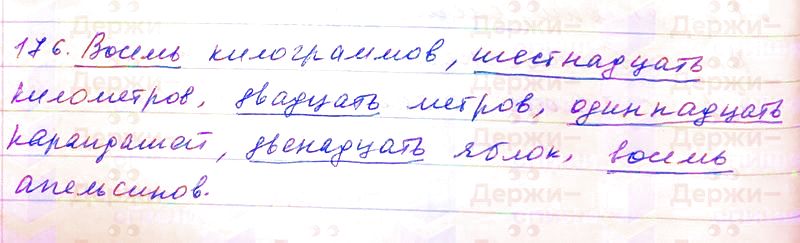 176. Восемь килограммов, шестнадцать
километров, двадцать метров, одиннадцать
карандашей, двенадцать яблок, восемь
апельсинов.